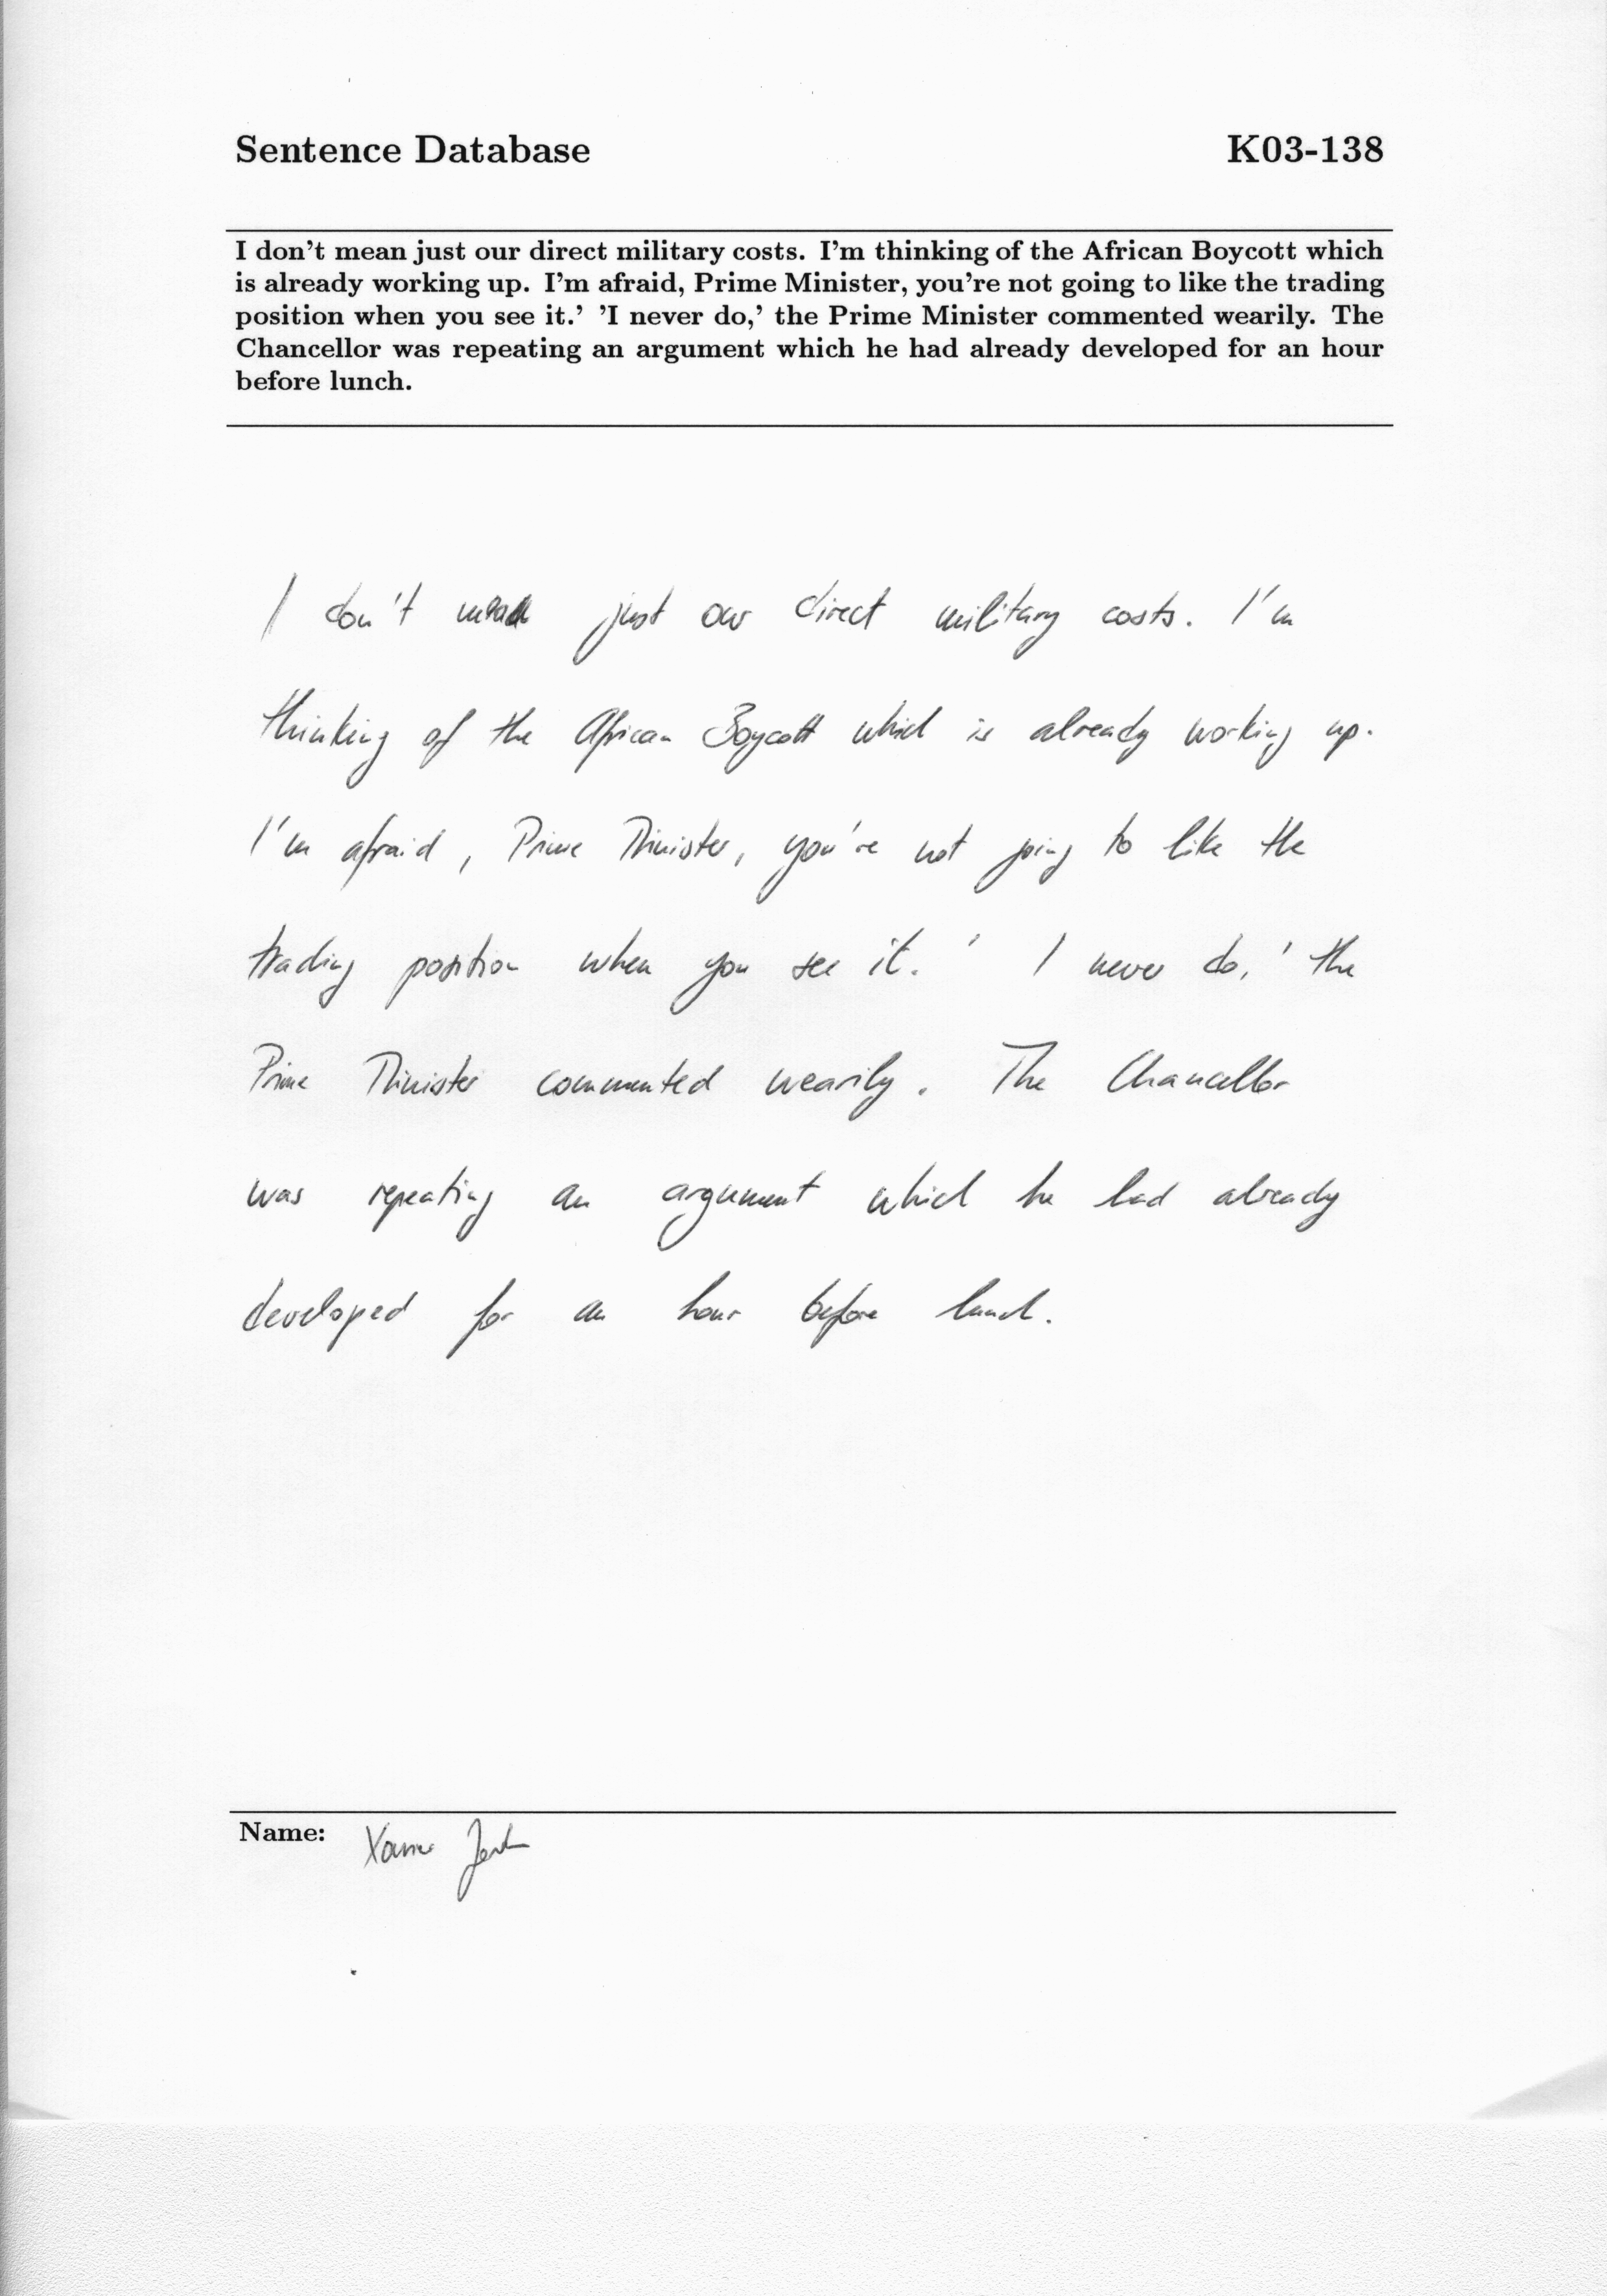 Sentence Database K03-138
I don't mean just our direct military costs. I'm thinking of the African Boycott which
is already working up. I'm afraid, Prime Minister, you're not going to like the trading
position when you see it.' 'I never do,' the Prime Minister commented wearily. The
Chancellor was repeating an argument which he had already developed for an hour
before lunch.
I don't mean just our direct military costs. I'm
thinking of the African Boycott which is already working up.
I'm afraid, Prime Minister, you're not going to like the
trading position when you see it.' I never do,' the
Prime Minister commented wearily. The Chancellor
was repeating an argument which he had already
developed for an hour before lunch.
Name: